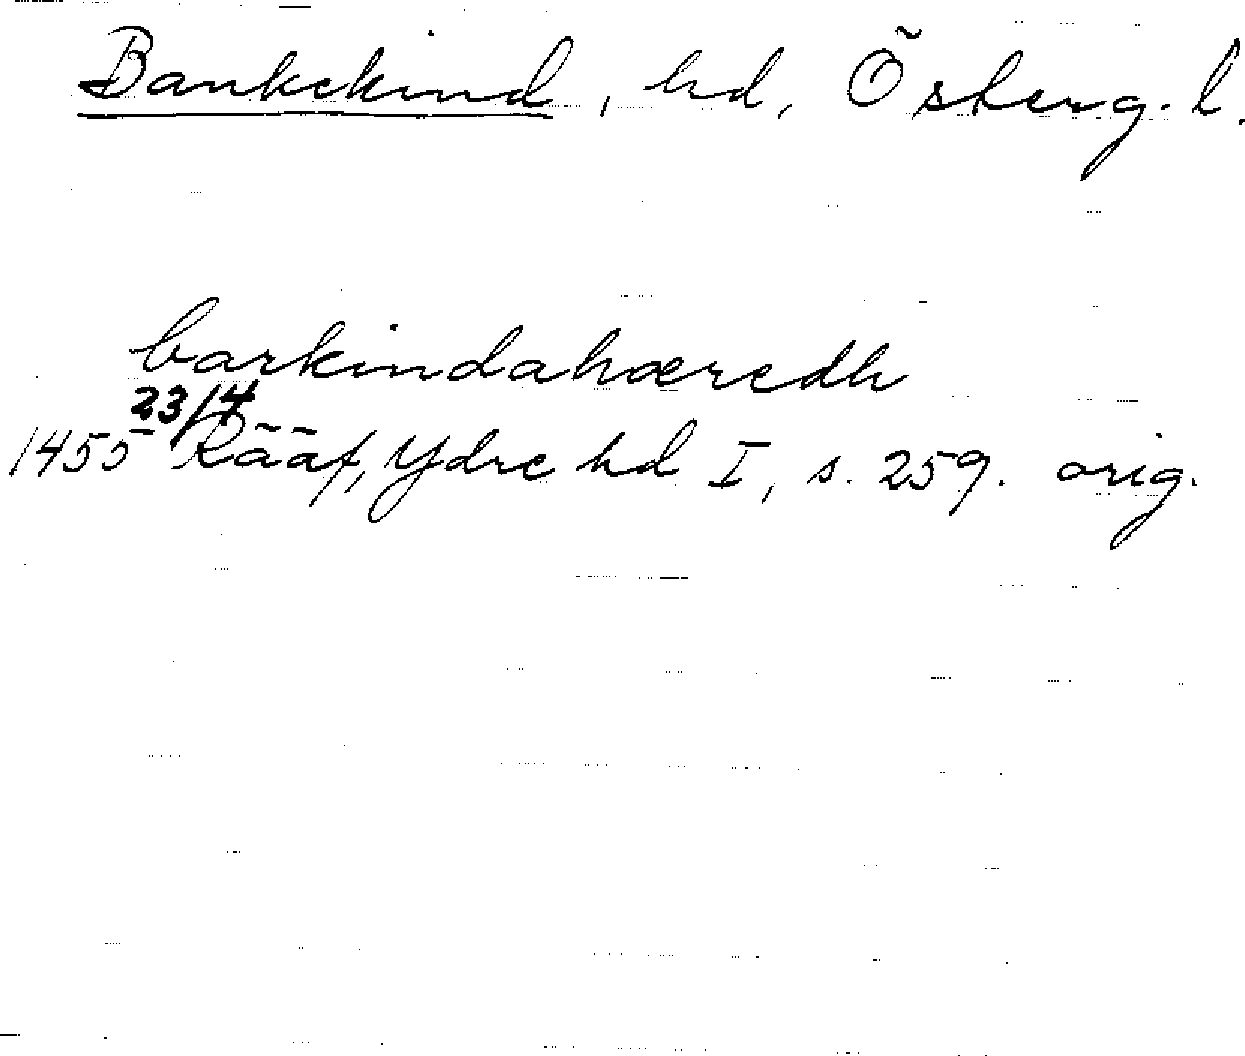 Bankekind, hd, Österg. l.
barkindahæredh
23/4
1455 Rääf, Ydre hd I, s. 259. orig.